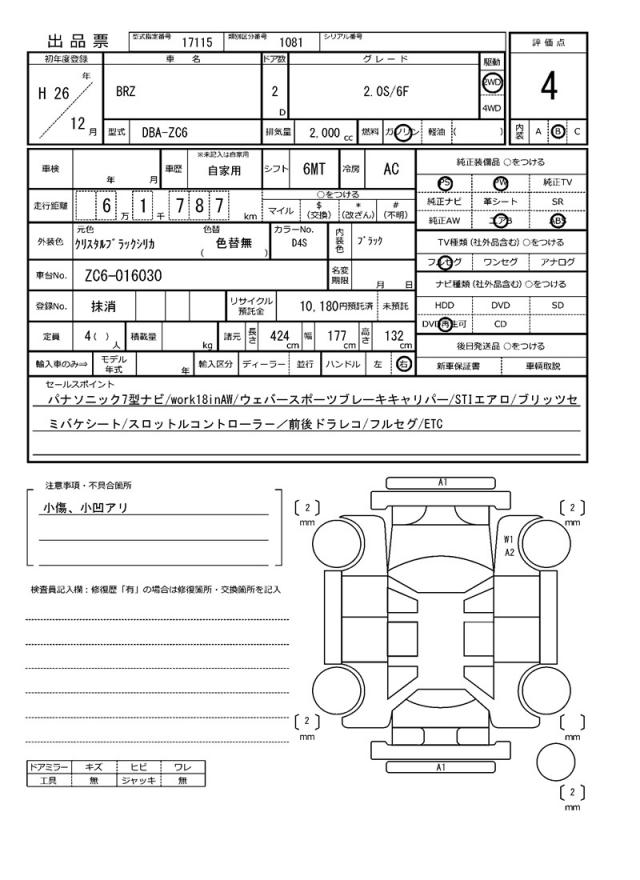 出品票 型式指定番号 17115 類別区分番号 1081 シリアル番号
評価点
初年度登録 車名 ドア数 グレード 駆動
H 26 年 BRZ 2 D 2.0S/6F 2WD 4WD 4
12 月 型式 DBA-ZC6 排気量 2,000 cc 燃料 ガソリン 軽油 ( ) 内装 A B C
車検 年 月 車歴 ※未記入は自家用 自家用 シフト 6MT 冷房 AC 純正装備品 ○をつける
PS PW 純正TV
走行距離 6 万 1 千 7 8 7 km ○をつける 純正ナビ 革シート SR
マイル $ (交換) * (改ざん) # (不明) 純正AW エアB ABS
外装色 元色 クリスタルブラックシリカ 色替 色替無 ( ) カラーNo. D4S 内装色 ブラック TV種類 (社外品含む) ○をつける
フルセグ ワンセグ アナログ
車台No. ZC6-016030 名変期限 月 日 ナビ種類 (社外品含む) ○をつける
登録No. 抹消 リサイクル預託金 10,180円預託済 未預託 HDD DVD SD
DVD再生可 CD
定員 4( ) 人 積載量 kg 諸元 長さ 424 cm 幅 177 cm 高さ 132 cm 後日発送品 ○をつける
輸入車のみ⇒ モデル年式 年 輸入区分 ディーラー 並行 ハンドル 左 右 新車保証書 車輌取説
セールスポイント
パナソニック7型ナビ/work18inAW/ウェバースポーツブレーキキャリパー/STIエアロ/ブリッツセ
ミバケシート/スロットルコントローラー/前後ドラレコ/フルセグ/ETC
注意事項・不具合箇所
小傷、小凹アリ
検査員記入欄：修復歴「有」の場合は修復箇所・交換箇所を記入
A1
〔 2 〕 mm
〔 2 〕 mm
W1
A2
〔 2 〕 mm
〔 〕 mm
A1
〔 2 〕 mm
ドアミラー キズ ヒビ ワレ
工具 無 ジャッキ 無